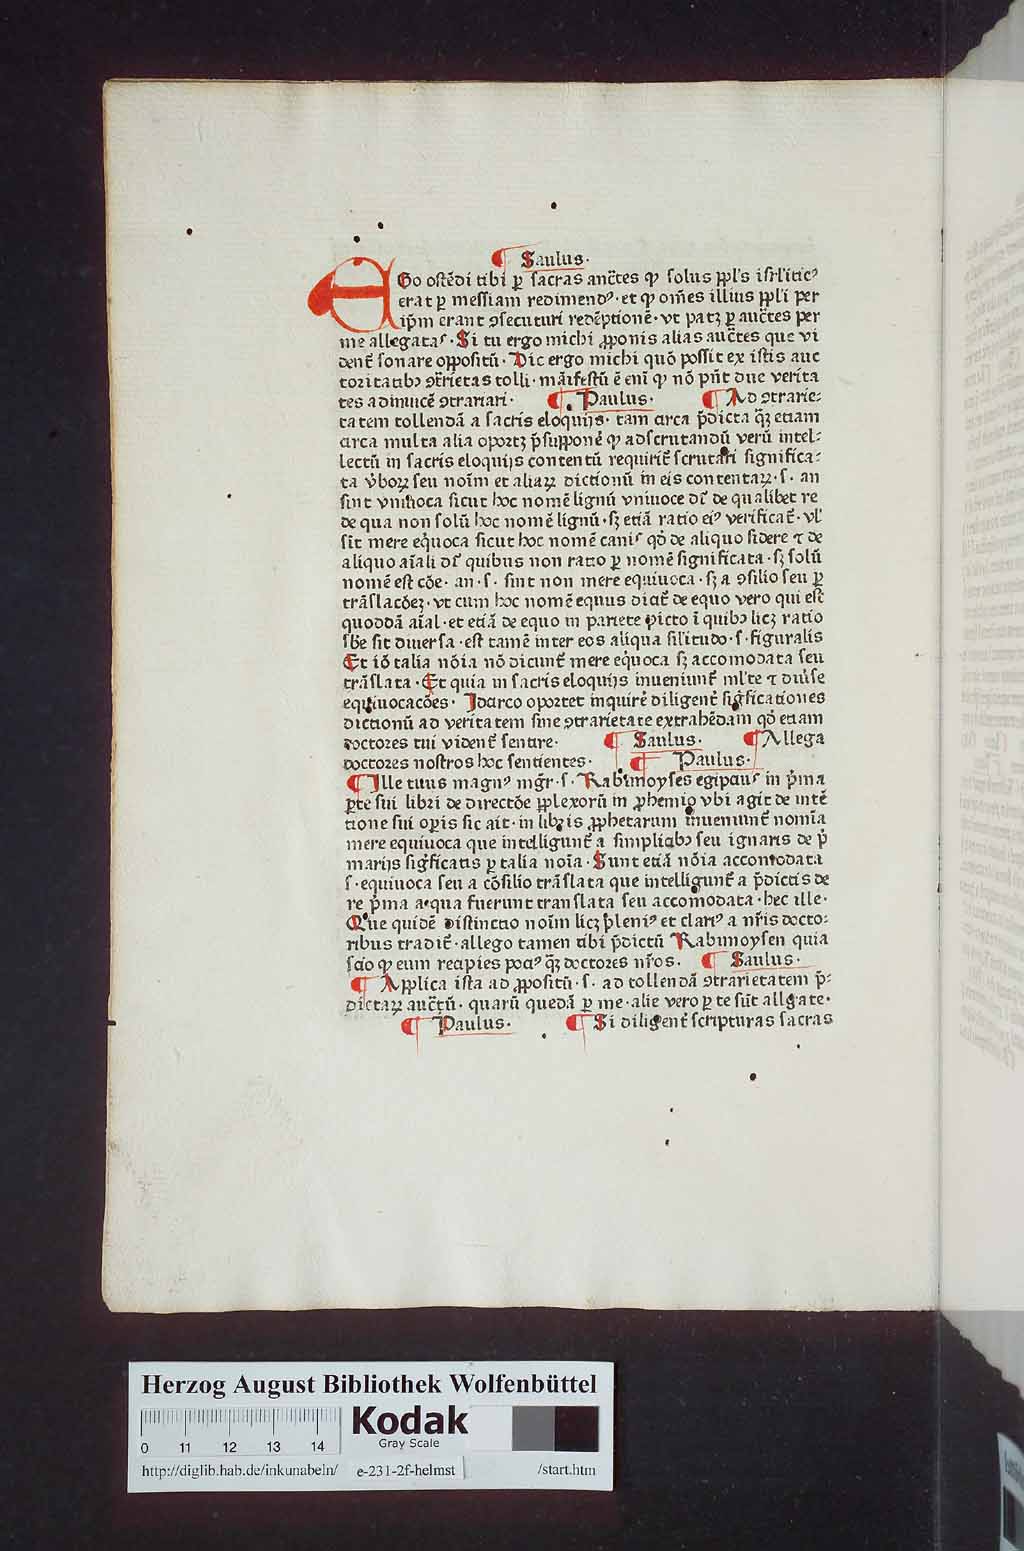 ¶ Saulus·
EGo ostēdi tibi ꝑ sacras auc̄tes ꝙ solus ppl's isrl'itic⁹
erat ꝑ messiam redimend⁹· et ꝙ om̄es illius ppl'i per
ip̄m erant ꝯsecuturi redēptionē· vt patꝫ ꝑ auc̄tes per
me allegatas· Si tu ergo michi ꝓponis alias auc̄tes que vi
dent̄ sonare oppositū· Dic ergo michi quō possit ex istis auc
toritatibꝰ ꝯt̄rietas tolli· māifestū ē eni̅ ꝙ nō pn̄t due verita
tes adinuicē ꝯtrariari· ¶ Paulus· ¶ Ad ꝯtrarie⸗
tatem tollendā a sacris eloquijs· tam circa p̄dicta qꝫ̄ etiam
circa multa alia oportꝫ p̄supponē ꝙ ad scrutandū verū intel⸗
lectū in sacris eloquijs contentū requirit̄ scrutari significa⸗
ta v̄boꝝ seu noīm et aliaꝝ dictionū in eis contentaꝝ· s· an
sint vniuoca sicut hoc nomē lignū vniuoce dr̄ de qualibet re
de qua non solū hoc nomē lignū· sꝫ etiā ratio ei⁹ verificat̄· vl'
sīt mere eq̇uoca sicut hoc nomē canis qd̄ de aliquo sidere ⁊ de
aliquo aīali dr̄ quibus non ratio ꝑ nomē significata· sꝫ solū
nomē est cōe· an· s· sint non mere equiuoca· sꝫ a ꝯsilio seu ꝑ
trāslacōeꝫ· vt cum hoc nomē equus dicit̄ de equo vero qui est
quoddā aīal· et etiā de equo in pariete picto ī quibꝰ licꝫ ratio
sb̄e sit diuersa· est tamē inter eos aliqua sil'itudo· s· figuralis
Et iō talia nōia nō dicunt̄ mere eq̇uoca sꝫ accomodata seu
trāslata· Et quia in sacris eloquijs inueniunt̄ ml'te ⁊ diu̅se
equiuocacōes· Idcirco oportet inquirē diligent̄ sigficationes
dictionū ad veritatem sine ꝯtrarietate extrahēdam qd̄ etiam
doctores tui vident̄ sentire· ¶ Saulus· ¶ Allega
doctores nostros hoc sentientes· ¶ Paulus·
¶ Ille tuus magn⁹ mgr̄· s· Rabimoyses egipcius in p̄ma
ꝑte sui libri de directōe ꝑplexorū in ꝓhemio vbi agit de intē
tione sui oꝑis sic ait· in libris ꝓphetarum inueniunt̄ nomīa
mere equiuoca que intelligunt̄ a simplicibꝰ seu ignaris de p̄
marijs sigficatis ꝑ talia noīa· Sunt etiā nōia accomodata
s· equiuoca seu a cōsilio trāslata que intelligunt̄ a p̄dictis de
re p̄ma a qua fuerunt translata seu accomodata· hec ille·
Que quidē distinctio noīm licꝫ pleni⁹ et clari⁹ a nr̄is docto⸗
ribus tradit̄· allego tamen tibi p̄dictū Rabimoysen quia
scio ꝙ eum recipies poci⁹ qꝫ̄ doctores nr̄os· ¶ Saulus·
¶ Applica ista ad ꝓpositū· s· ad tollendā ꝯtrarietatem p̄⸗
dictaꝝ auc̄tū· quarū quedā ꝑ me· alie vero ꝑ te sūt allgate·
¶ Paulus· ¶ Si diligent̄ scripturas sacras
Herzog August Bibliothek Wolfenbüttel
Kodak
Gray Scale
0 11 12 13 14
http://diglib.hab.de/inkunabeln/ e-231-2f-helmst /start.htm